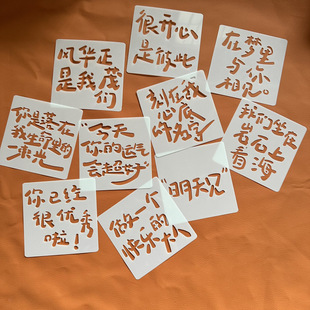 风华正
是我茂
们
很开心
是彼此
在梦里
与你
相见。
你是落在
我生命里的
一束光
"今天
你的运气
会超好"
刻在我
心底
的名字
我们坐在
岩石上
看海
你已经
很优秀
啦！
做一个
快乐的大人
"明天见"